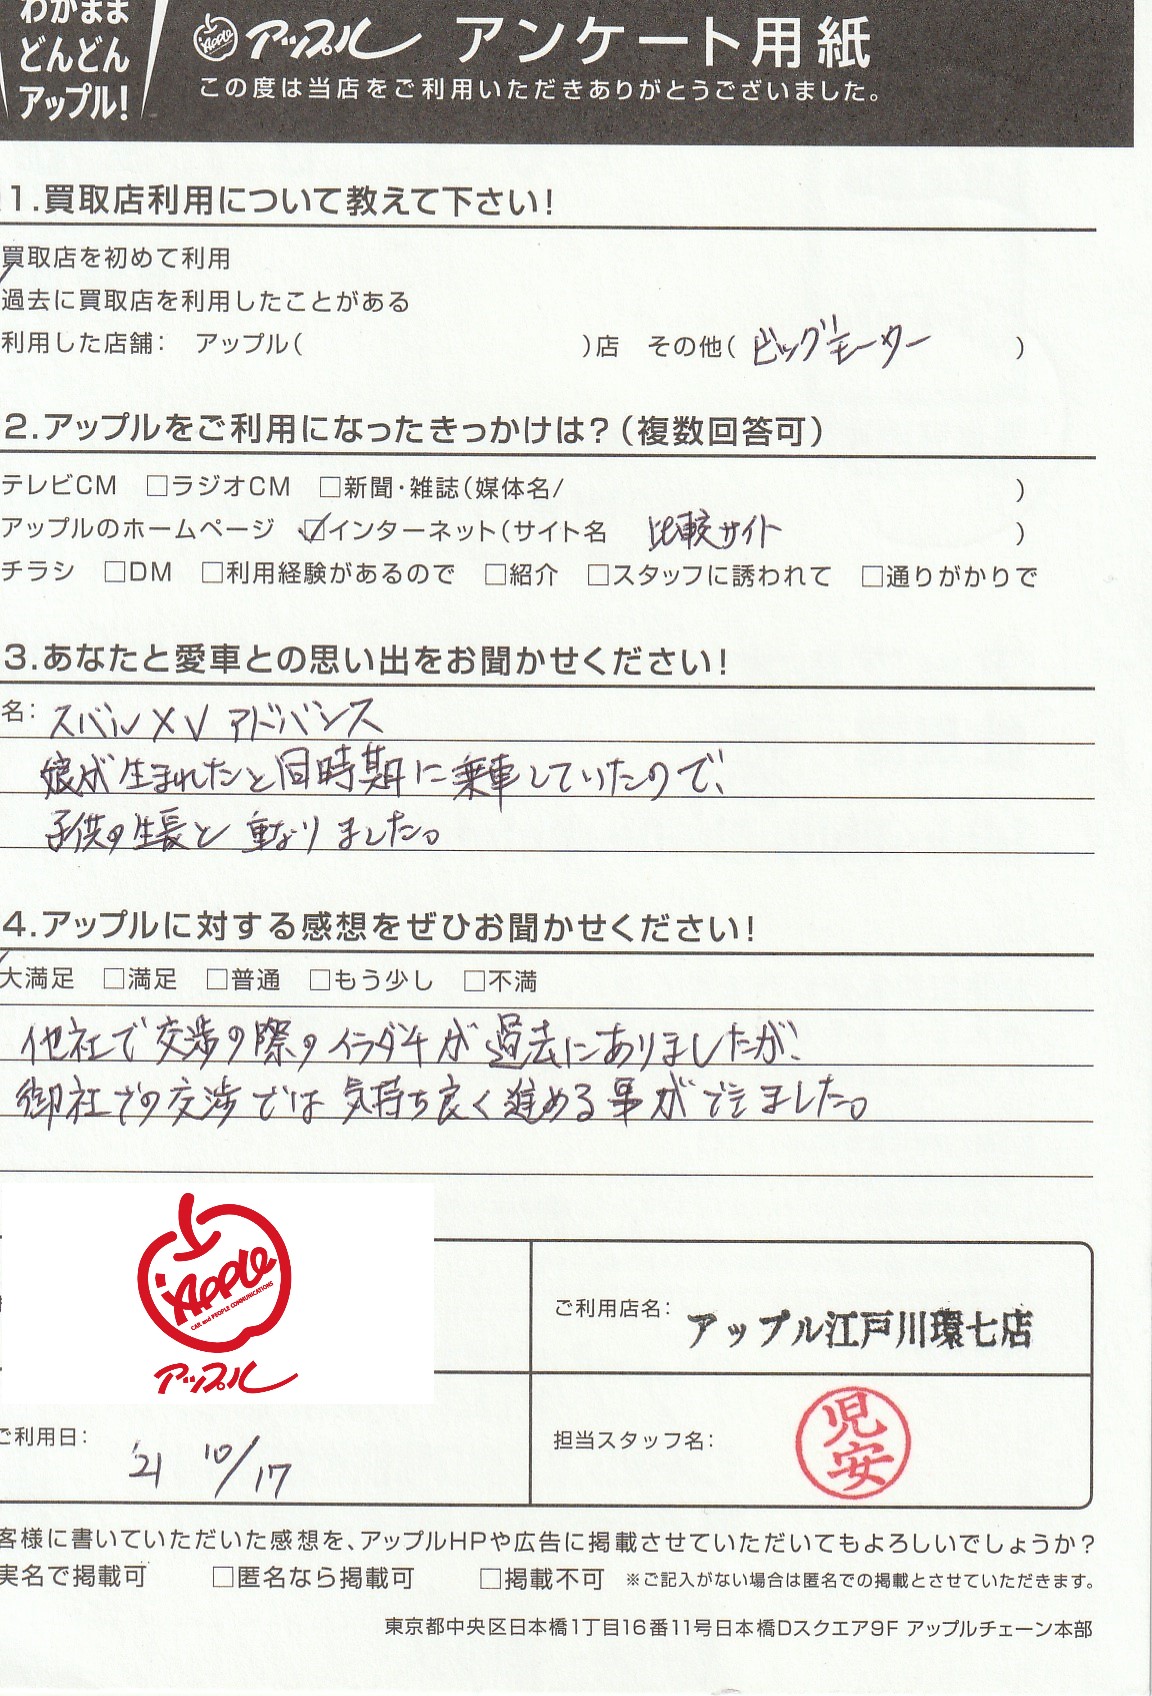 わがまま
どんどん
アップル!
Apple アップル アンケート用紙
この度は当店をご利用いただきありがとうございました。
1.買取店利用について教えて下さい!
買取店を初めて利用
過去に買取店を利用したことがある
利用した店舗: アップル( )店 その他( ビッグモーター )
2.アップルをご利用になったきっかけは?(複数回答可)
テレビCM □ラジオCM □新聞・雑誌(媒体名/ )
アップルのホームページ ☑インターネット(サイト名 比較サイト )
チラシ □DM □利用経験があるので □紹介 □スタッフに誘われて □通りがかりで
3.あなたと愛車との思い出をお聞かせください!
名: スバル XV アドバンス
娘が生まれたと同時期に乗車していたので、
子供の生長と重なりました。
4.アップルに対する感想をぜひお聞かせください!
大満足 □満足 □普通 □もう少し □不満
他社で交渉の際のイラダチが過去にありましたが、
御社での交渉では気持ち良く進める事ができました。
Apple
CAR and PEOPLE COMMUNICATIONS
アップル
ご利用店名: アップル江戸川環七店
ご利用日: '21 10/17
担当スタッフ名: 児安
客様に書いていただいた感想を、アップルHPや広告に掲載させていただいてもよろしいでしょうか?
実名で掲載可 □匿名なら掲載可 □掲載不可 ※ご記入がない場合は匿名での掲載とさせていただきます。
東京都中央区日本橋1丁目16番11号日本橋Dスクエア9F アップルチェーン本部